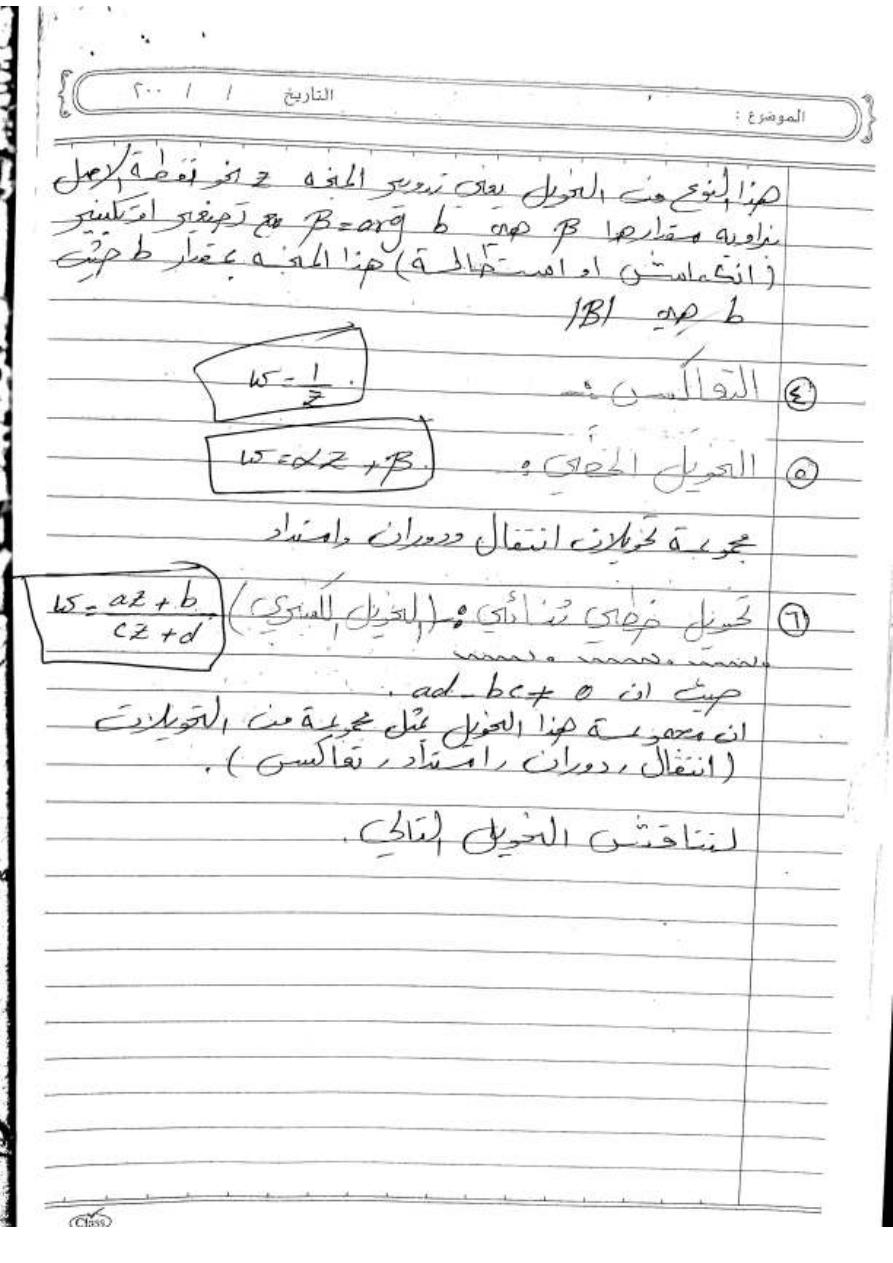 الموضوع :
التاريخ / / ٢٠٠
هذا النوع من التحويل يعني تدوير المتجه z نحو نقطة الاصل
بزاوية مقدارها β هي β = arg b مع تصغير او تكبير
(انكماش او استطالة) هذا المتجه بمقدار b حيث
b هي |B|
④ التعاكس :- w = 1/z
⑤ التحويل الخطي : w = αz + β
مجموعة تحويلات انتقال ودوران وامتداد
⑥ تحويل خطي ثنائي :- (التحويل الكسري) w = az + b / cz + d
حيث ان ad - bc ≠ 0 .
ان مجموعة هذا التحويل تمثل مجموعة من التحويلات
(انتقال , دوران , امتداد , تعاكس) .
لنناقش التحويل التالي .
Class